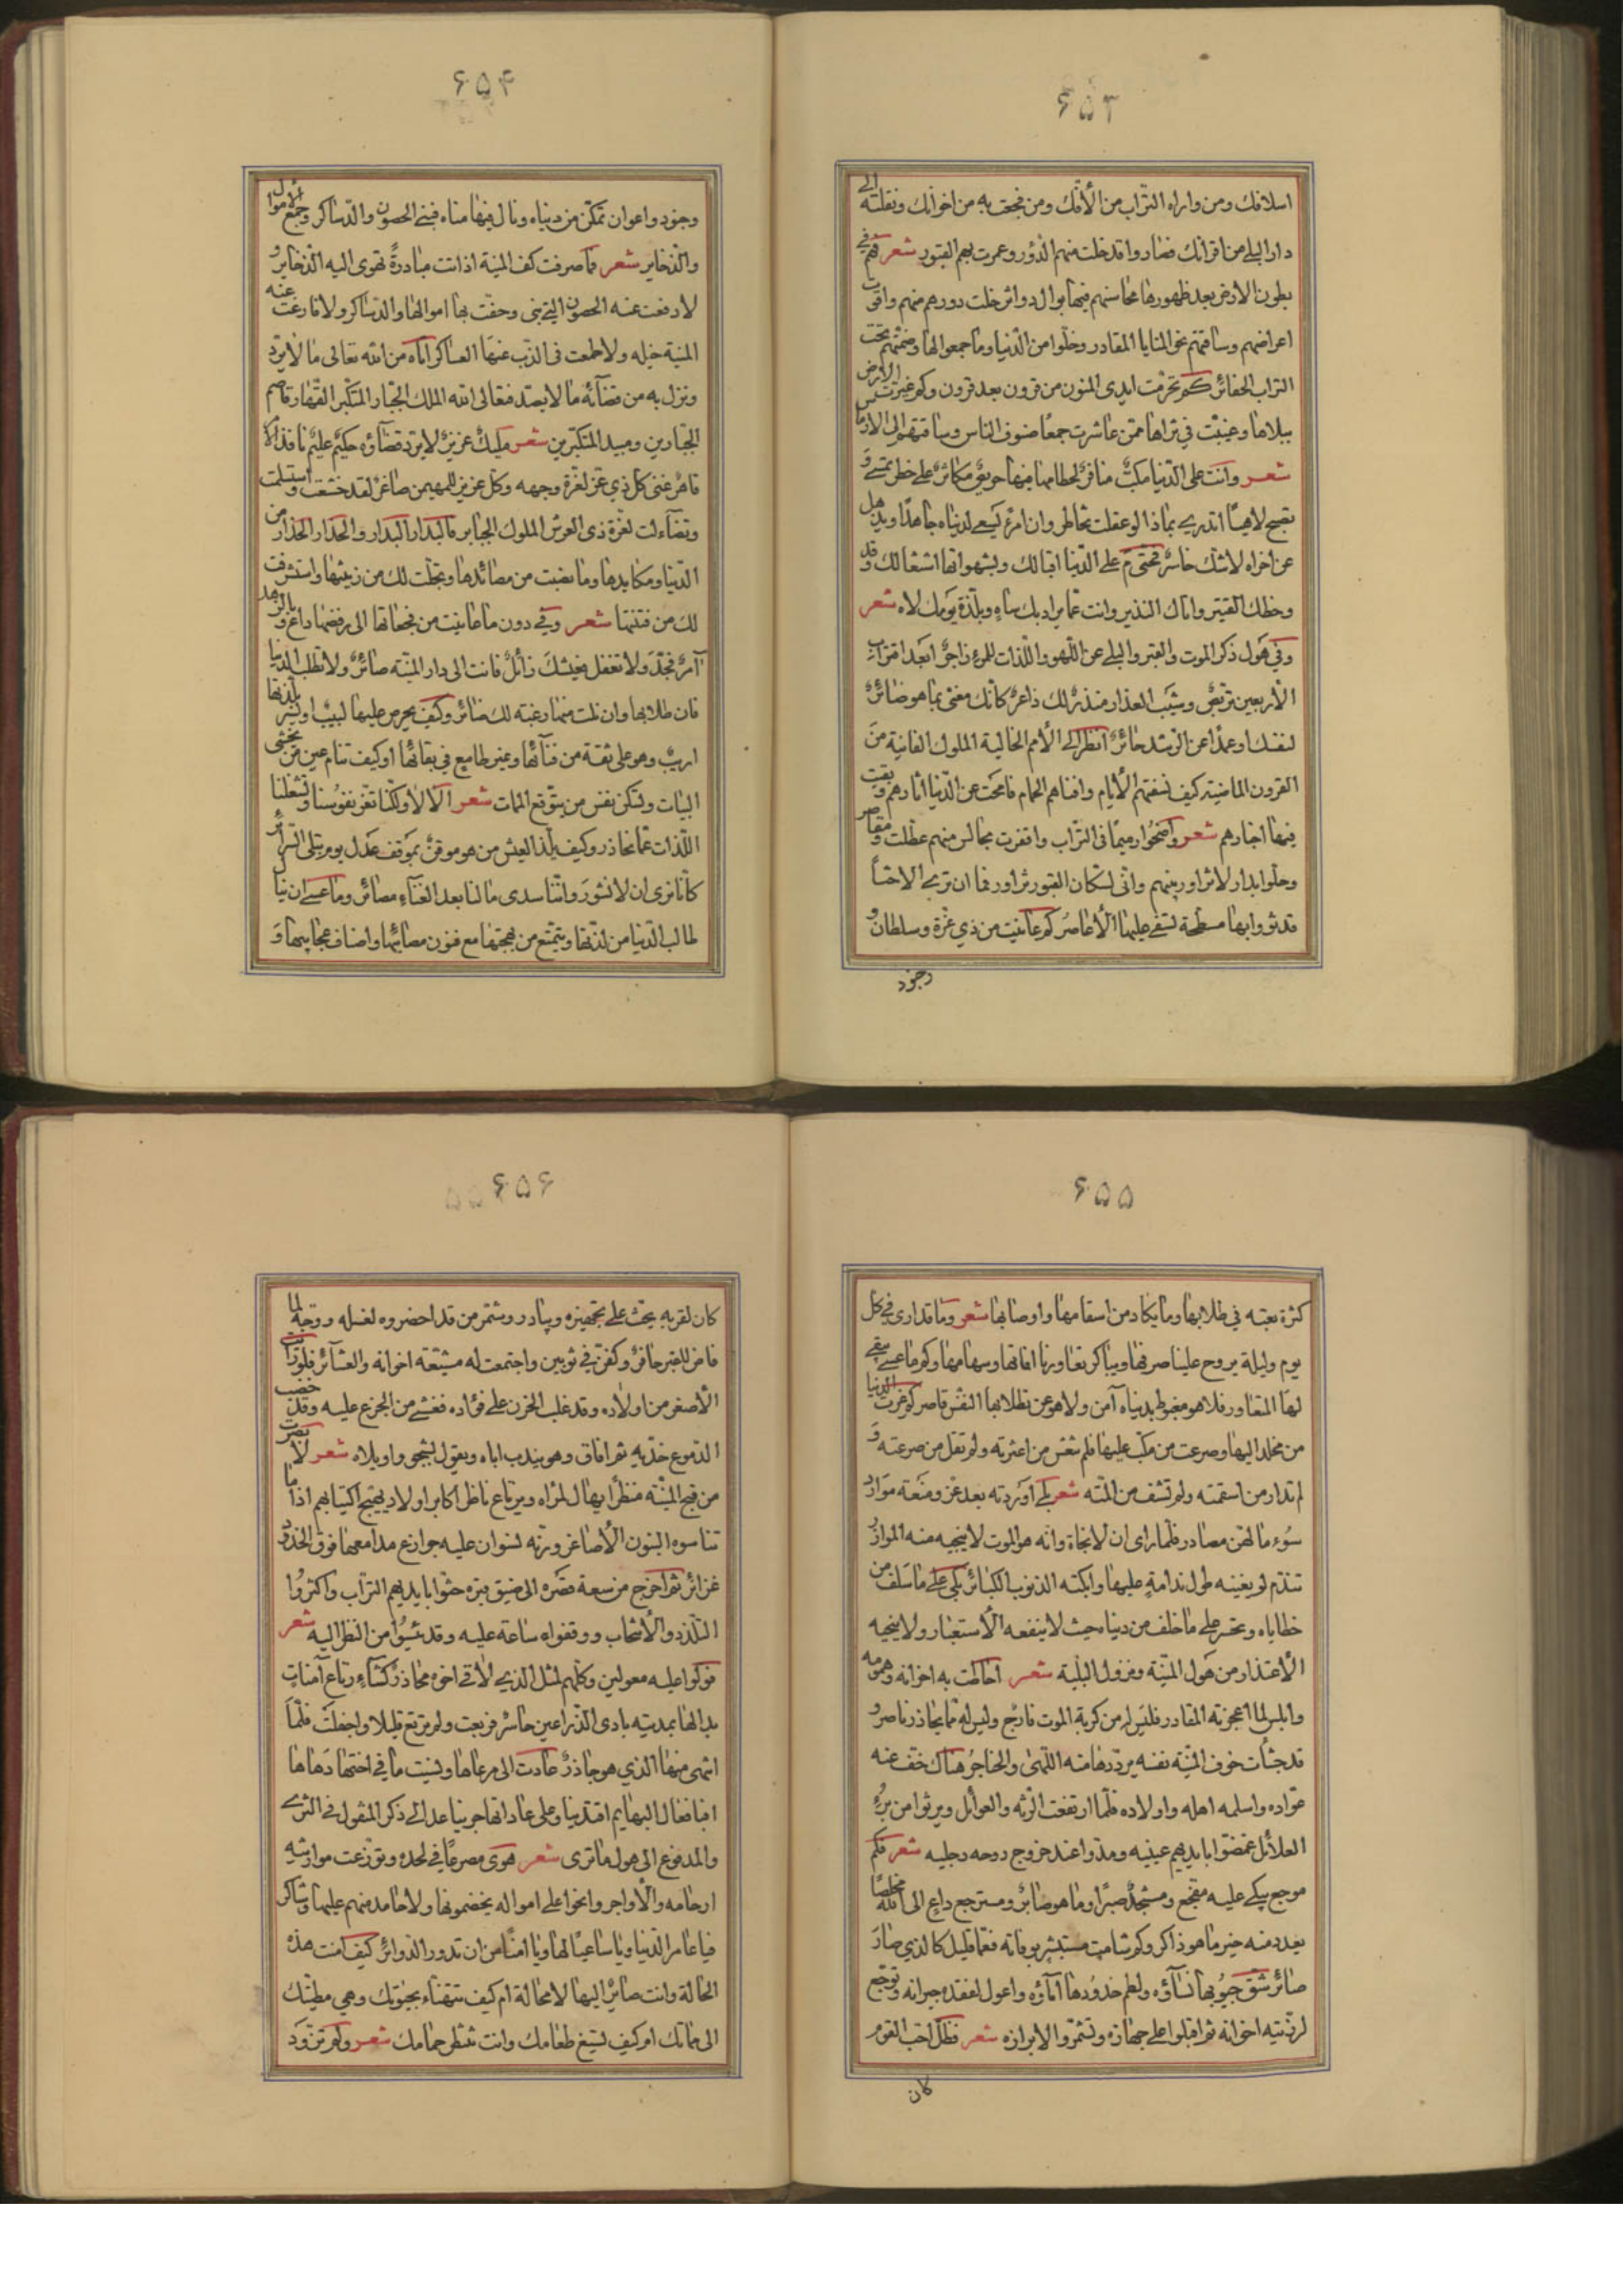 ۶۵۳
اسلافك ومن واراه التراب من الافك ومن فجعت به من اخوانك ونقلته الى
دار البلى من اقرانك فصاروا قد خلت منهم الدور وعمرت بهم القبور شعر فهم في
بطون الارض بعد ظهورها محاسنهم فيها بوال دواثر خلت دورهم منهم واقوت
اعراضهم وساقتهم نحو المنايا المقادر وخلوا من الدنيا وما جمعوا لها وضمتهم تحت
التراب الحفائر كم تخرمت ايدى المنون من قرون بعد قرون وكم غيرت الارض
ببلاها وغيبت في ثراها ممن عاشرت جمعا صنوف الناس وساقتهم الى الارماس
شعر وانت على الدنيا مكب منافر لحطامها فيها حريص مكاثر على خطر تمسي و
تصبح لاهيا اتدري بماذا لو عقلت تخاطر وان امرئ يسعى لدنياه جاهدا ويذهل
عن اخراه لاشك خاسر فحتى م على الدنيا اقبالك وبشهواتها اشتغالك وقد
وخطك القتير واتاك النذير وانت عما يراد بك ساه وبلذة يومك لاه شعر
وفي هول ذكر الموت والقبر والبلى عن اللهو واللذات للمرء زاجر ابعد اقتراب
الاربعين تربص وشيب العذار منذر لك ذاعر كانك مغنى بما هو ضائر
لنفسك او عمدا عن الرشد حائر انظر الى الامم الخالية الملوك الفانية من
القرون الماضية كيف نسفتهم الايام وافناهم الحمام فامحت عن الدنيا اثارهم وبقيت
فيها اخبارهم شعر واضحوا رميما في التراب واقفرت مجالس منهم عطلت ومقاصر
وحلوا بدار لا تزاور بينهم وانى لسكان القبور تزاور فما ان ترى الا جثا
قد ثووا بها مسطحة تسفى عليها الاعاصر كم عاينت من ذي عزة وسلطان و
وجنود
۶۵۴
وجنود واعوان تمكن من دنياه ونال فيها مناه فبنى الحصون والدساكر وجمع الاموال
والذخاير شعر فما صرفت كف المنية اذ اتت مبادرة تهوى اليه الذخاير و
لا دفعت عنه الحصون التي بنى وحفت بها اموالها والدساكر ولا قارعت عنه
المنية خيله ولا طمعت في الذب عنها العساكر اتاه من الله تعالى ما لا يرد
ونزل به من قضائه ما لا يصد فتعالى الله الملك الجبار المتكبر القهار قاصم
الجبارين ومبيد المتكبرين شعر مليك عزيز لا يرد قضاؤه حكيم عليم نافذ الامر
قاهر عنى كل ذي عز لعزة وجهه وكل عزيز للمهيمن صاغر لقد خشعت واستسلمت
وتضاءلت لعزة ذى العرش الملوك الجبابر فالبدار البدار والحذار الحذار من
الدنيا ومكايدها وما نصبت من مصائدها وتجلت لك من زينتها واستشرفت
لك من فتنتها شعر وفي دون ما عاينت من فجعاتها الى رفضها داع وبالزهد
آمر فجد ولا تغفل فعيشك زائل فانت الى دار المنية صائر ولا تطلب الدنيا
فان طلابها وان نلت منها رغبة لك ضائر وكيف يحرص عليها لبيب او يسر بلذتها
اريب وهو على ثقة من فنائها وغير طامع في بقائها او كيف تنام عين من يخشى
البيات وتسكن نفس من يتوقع الممات شعر الا لا ولكنا نغر نفوسنا وتشغلنا
اللذات عما نحاذر وكيف يلذ العيش من هو موقن بموقف عدل يوم تبلى السرائر
كانا نرى ان لا نشور واننا سدى ما لنا بعد الفناء مصائر وما عسى ان ينال
طالب الدنيا من لذتها ويتمتع من بهجتها مع فنون مصائبها واصناف عجائبها و
۶۵۵
كثرة تعبه في طلابها وما يكابد من اسقامها واوصابها شعر وما قد ارى في كل
يوم وليلة يروح علينا صرفها ويباكر تعاورنا افاتها وسهامها وكم ما عسى يبقى
لها المتعاور فلا هو مغبوط بدنياه آمن ولا هو عن تطلابها النفس قاصر كم غرت الدنيا
من مخلد اليها وصرعت من مكب عليها فلم تنعش من اعثرته ولم تقل من صرعته و
لم تداو من اسقمته ولم تشف من المته شعر بلى اوردته بعد عز ومنعة موارد
سوء ما لهن مصادر فلما راى ان لا نجاة وانه هو الموت لا ينجيه منه الموازر
تندم لو يغنيه طول ندامة عليها وابكته الذنوب الكبائر بكى على ما سلف من
خطاياه وتحسر على ما خلف من دنياه حيث لا ينفعه الاستعبار ولا ينجيه
الاعتذار من هول المنية ونزول البلية شعر احاطت به احزانه وهمومه
وابلس لما اعجزته المقادر فليس له من كربة الموت فارج وليس له مما يحاذر ناصر و
قد جشأت خوف المنية نفسه يرددها منه اللهى والحناجر هناك خف عنه
عواده واسلمه اهله واولاده فلما ارتفعت الرنة والعوائل ويئسوا من برء
العلائل غمضوا بايديهم عينيه ومدوا عند خروج روحه رجليه شعر فكم
موجع يبكي عليه مفجع ومستنجد صبرا وما هو صابر ومسترجع داع الى الله مخلصا
يعدد منه خير ما هو ذاكر وكم شامت مستبشر بوفاته فعما قليل كالذي صار
صائر شقت جيوبها نساؤه ولطم خدودها اماؤه واعول لفقده جيرانه وتوجع
لرزيته اخوانه ثم اقبلوا على جهازه وتشمروا لابرازه شعر فظل احب القوم
كان
۶۵۶
كان لقربه يحث على تجهيزه ويبادر وشمر من قد احضروه لغسله ووجه لما
فاض للقبر حافر وكفن في ثوبين واجتمعت له مشيعة اخوانه والعشائر فلو رايت
الاصغر من اولاده وقد غلب الحزن على فؤاده فغشي من الجزع عليه وقد خضبت
الدموع خديه ثم افاق وهو يندب اباه ويقول بشجو واويلاه شعر لابصرت
من قبح المنية منظرا يهال لمرآه ويرتاع ناظر اكابر اولاد يهيج اكتيابهم اذا ما
تناسوه البنون الاصاغر ورنة نسوان عليه جوازع مدامعها فوق الخدود
غزائر ثم اخرج من سعة قصره الى ضيق قبره حثوا بايديهم التراب واكثروا
التلدد والانتحاب ووقفوا ساعة عليه وقد يئسوا من النظر اليه شعر
فولوا عليه معولين وكلهم لمثل الذي لاقى اخوه محاذر كشاء رتاع آمنات
بدا لها بمديته بادى الذراعين حاسر فريعت ولم ترتع قليلا واجفلت فلما
انتهى منها الذي هو حاذر عادت الى مرعاها ونسيت ما في اختها دهاها
افبافعال البهايم اقتدينا وعلى عاداتها جرينا عد الى ذكر المنقول في الثرى
والمدفوع الى هول ما ترى شعر هوى مصرعا في لحده وتوزعت مواريثه
ارحامه والاواجر وانحوا على امواله يخضمونها ولا حامد منهم عليها وشاكر
فيا عامر الدنيا ويا ساعيا لها ويا امنا من ان تدور الدوائر كيف امنت هذه
الحالة وانت صائر اليها لا محالة ام كيف تتهناء بحيوتك وهي مطيتك
الى مماتك ام كيف تسيغ طعامك وانت تنتظر حمامك شعر ولم تتزود